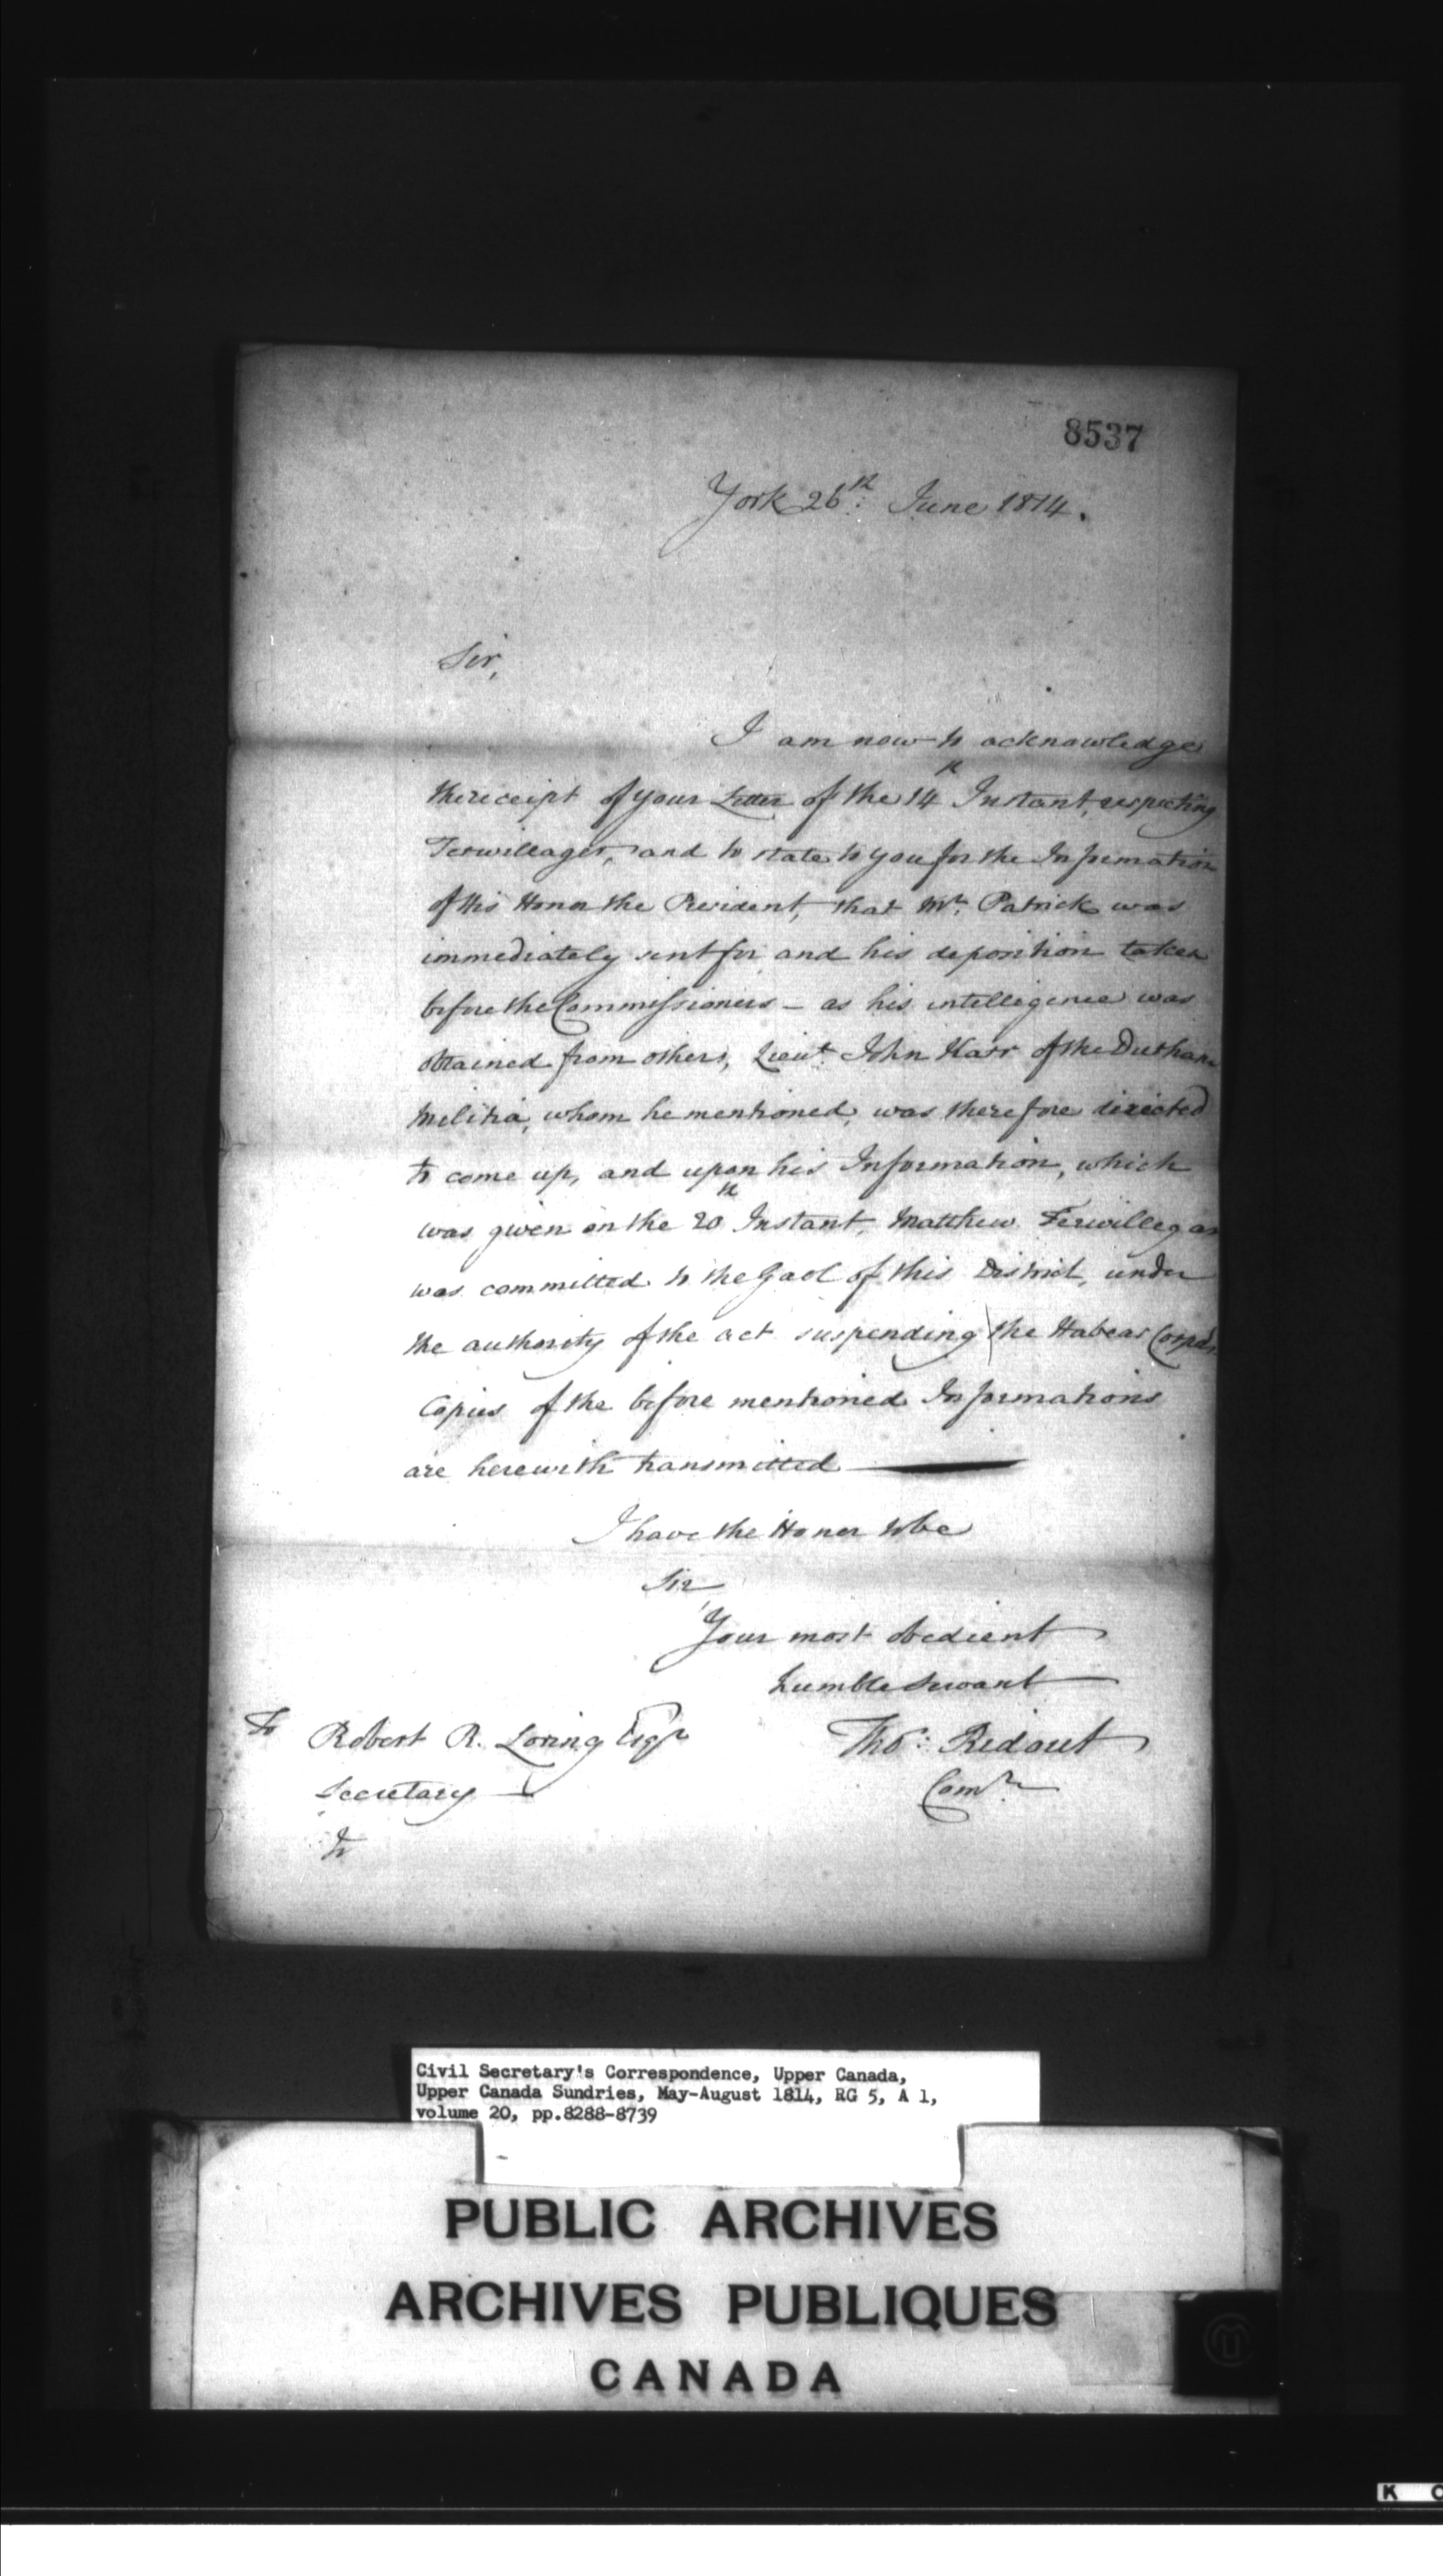 8537
York 26th: June 1814.
Sir,
I am now to acknowledge
the receipt of your Letter of the 14th Instant, respecting
Terwilleager, and to state to you for the Information
of His Honor the President, that Mr. Patrick was
immediately sent for and his deposition taken
before the Commissioners – as his intelligence was
obtained from others, Lieut. John Karr of the Durham
Militia, whom he mentioned, was therefore directed
to come up, and upon his Information, which
was given on the 20th Instant, Matthew Terwillegar
was committed to the Gaol of this District, under
the authority of the act suspending the Habeas Corpus.
Copies of the before mentioned Informations
are herewith transmitted
I have the Honor to be
Sir,
Your most obedient
humble servant
Tho: Ridout
Comr.
To Robert R. Loring Esqr
Secretary
Civil Secretary's Correspondence, Upper Canada,
Upper Canada Sundries, May-August 1814, RG 5, A 1,
volume 20, pp.8288-8739
PUBLIC ARCHIVES
ARCHIVES PUBLIQUES
CANADA
K